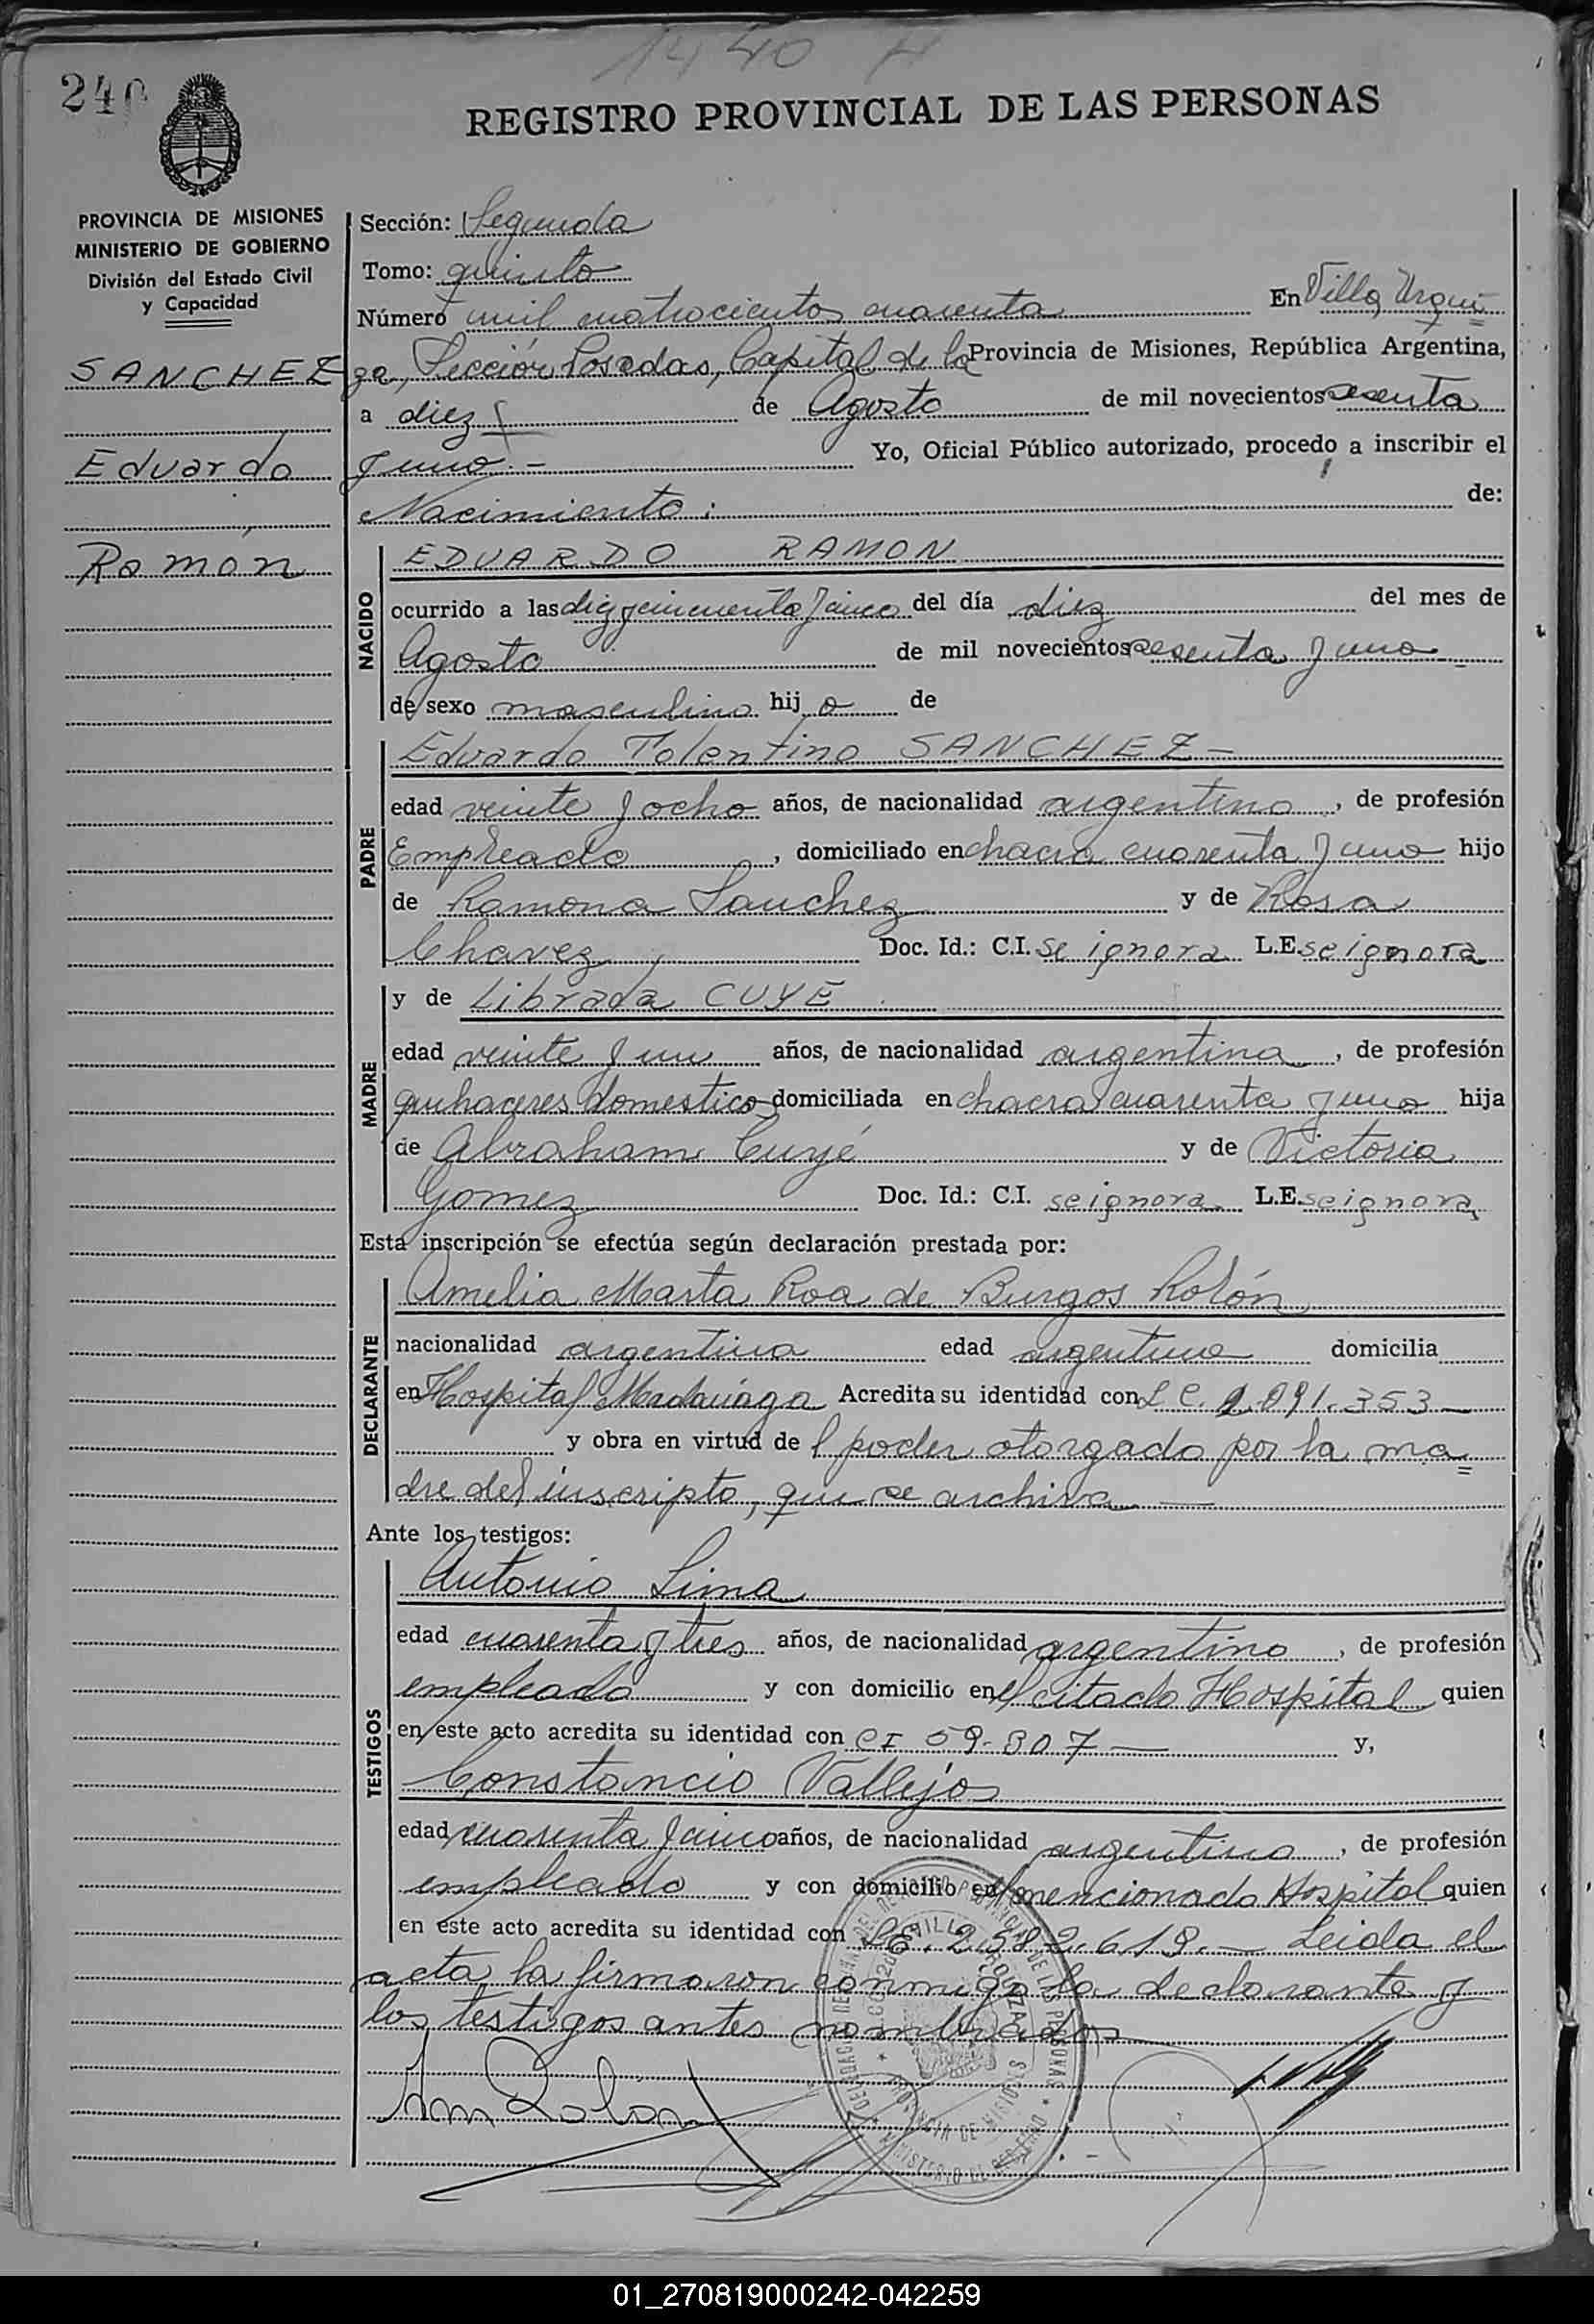 1440
240
REGISTRO PROVINCIAL DE LAS PERSONAS
PROVINCIA DE MISIONES
MINISTERIO DE GOBIERNO
División del Estado Civil
y Capacidad
SANCHEZ
Eduardo
Ramón
Sección: Segunda
Tomo: quinto
Número mil cuatrocientos cuarenta En Villa Urqui=
za, Sección Posadas, Capital de la Provincia de Misiones, República Argentina,
a diez de Agosto de mil novecientos sesenta
y uno.- Yo, Oficial Público autorizado, procedo a inscribir el
Nacimiento: de:
NACIDO
EDUARDO RAMON
ocurrido a las diez y cincuenta y cinco del día diez del mes de
Agosto de mil novecientos sesenta y uno
de sexo masculino hijo de
PADRE
Eduardo Tolentino SANCHEZ-
edad veinte y ocho años, de nacionalidad argentino, de profesión
Empleado, domiciliado en chacra cuarenta y uno hijo
de Ramona Sanchez y de Rosa
Chavez Doc. Id.: C.I. se ignora L.E. se ignora
MADRE
y de Librada CUYÉ
edad veinte y un años, de nacionalidad argentina, de profesión
quehaceres domestico domiciliada en chacra cuarenta y uno hija
de Abraham Cuyé y de Victoria
Gomez Doc. Id.: C.I. se ignora L.E. se ignora
Esta inscripción se efectúa según declaración prestada por:
DECLARANTE
Amelia Marta Roa de Burgos Rolón
nacionalidad argentina edad argentina domicilia
en Hospital Madariaga Acredita su identidad con L.C. 2.091.353
y obra en virtud de l poder otorgado por la ma=
dre del inscripto, que se archiva
Ante los testigos:
TESTIGOS
Antonio Lima
edad cuarenta y tres años, de nacionalidad argentino, de profesión
empleado y con domicilio en el citado Hospital quien
en este acto acredita su identidad con CI 59.807 y,
Constancio Vallejos
edad cuarenta y cinco años, de nacionalidad argentino, de profesión
empleado y con domicilio en el mencionado Hospital quien
en este acto acredita su identidad con LE. 2.582.619.- Leida el
acta, la firmaron conmigo la declarante y
los testigos antes nombrados
PROVINCIA DE MISIONES
01_270819000242-042259